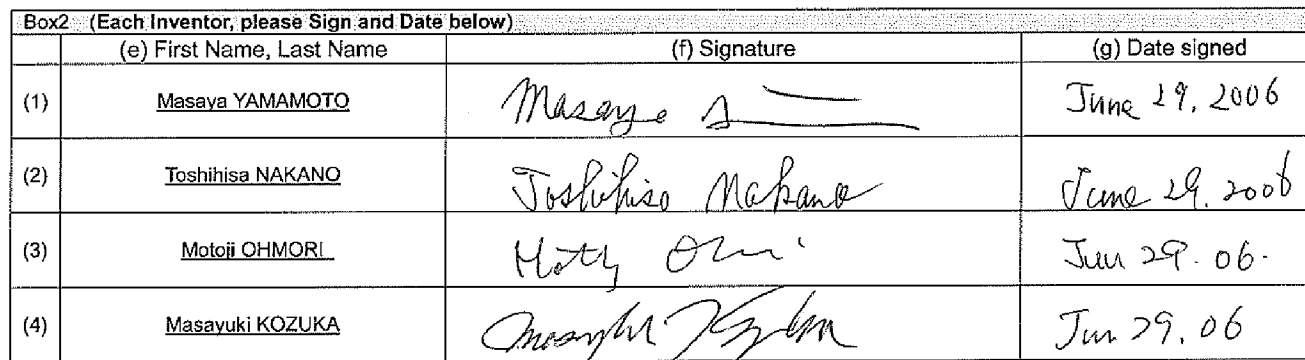 Box2 (Each Inventor, please Sign and Date below)
(e) First Name, Last Name (f) Signature (g) Date signed
(1) Masaya YAMAMOTO Masaya June 29, 2006
(2) Toshihisa NAKANO Toshihisa Nakano June 29, 2006
(3) Motoji OHMORI Jun 29. 06.
(4) Masayuki KOZUKA Jun 29, 06